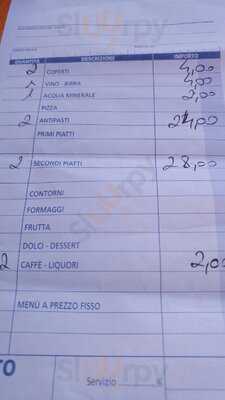 QUANTITÀ DESCRIZIONE IMPORTO
2 COPERTI 4,00
VINO - BIRRA 4,00
1 ACQUA MINERALE 2,00
PIZZA
2 ANTIPASTI 24,00
PRIMI PIATTI
2 SECONDI PIATTI 28,00
CONTORNI
FORMAGGI
FRUTTA
DOLCI - DESSERT
2 CAFFÈ - LIQUORI 2,00
MENÙ A PREZZO FISSO
TO
Servizio €
Sluurpy